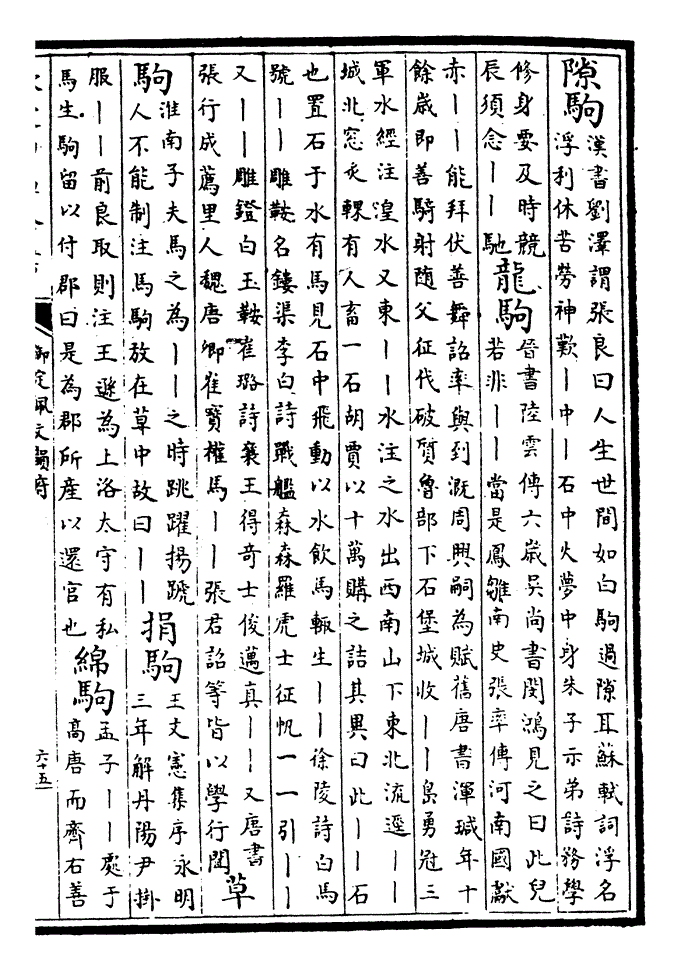 隙駒
漢書劉澤謂張良曰人生世間如白駒過隙耳蘇軾詞浮名
浮利休苦勞神歎丨中丨石中火夢中身朱子示弟詩務學
修身要及時競
辰須念丨丨馳
龍駒
晉書陸雲傳六歲吳尚書閔鴻見之曰此兒
若非丨丨當是鳳雛南史張率傳河南國獻
赤丨丨能拜伏善舞詔率與到溉周興嗣為賦舊唐書渾瑊年十
餘歲即善騎射隨父征伐破賀魯部下石堡城收丨丨島勇冠三
軍水經注湟水又東丨丨水注之水出西南山下東北流逕丨丨
城北窓炙輠有人畜一石胡賈以十萬購之詰其異曰此丨丨石
也置石于水有馬見石中飛動以水飲馬輙生丨丨徐陵詩白馬
號丨丨雕鞍名鏤渠李白詩戰艦森森羅虎士征帆一一引丨丨
又丨丨雕鐙白玉鞍崔璐詩襄王得奇士俊邁真丨丨又唐書
張行成薦里人魏唐卿崔寶權馬丨丨張君詔等皆以學行聞
草
駒
淮南子夫馬之為丨丨之時跳躍揚蹏
人不能制注馬駒放在草中故曰丨丨
捐駒
王文憲集序永明
三年解丹陽尹掛
服丨丨前良取則注王遜為上洛太守有私
馬生駒留以付郡曰是為郡所產以還官也
綿駒
孟子丨丨處于
高唐而齊右善
御定佩文韻府
六十五